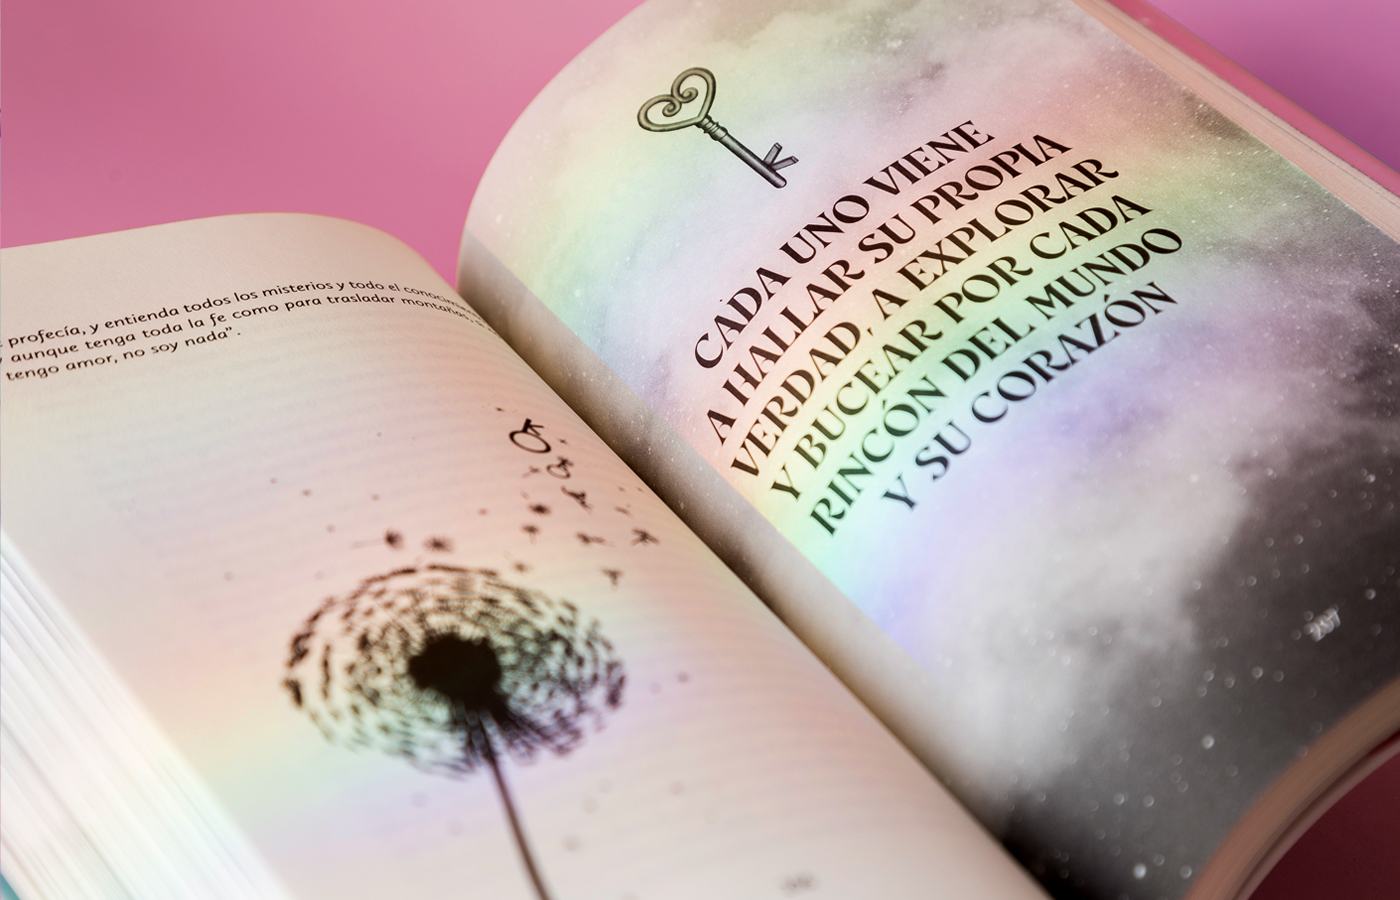 profecía, y entienda todos los misterios y todo el
aunque tenga toda la fe como para trasladar montañas,
tengo amor, no soy nada".
CADA UNO VIENE
A HALLAR SU PROPIA
VERDAD, A EXPLORAR
Y BUCEAR POR CADA
RINCÓN DEL MUNDO
Y SU CORAZÓN